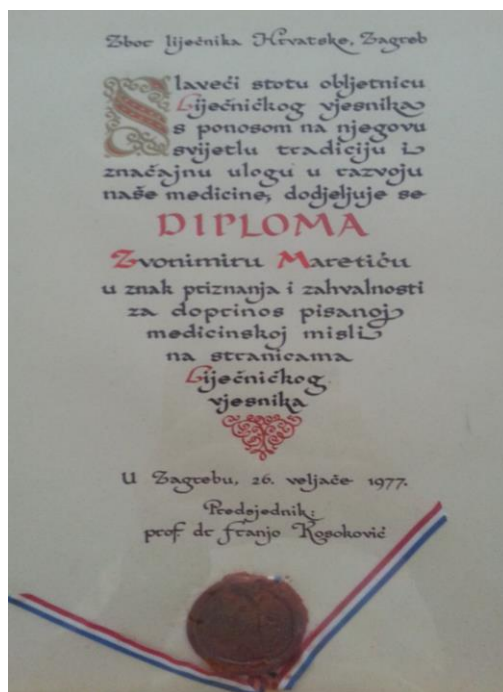 Zbor liječnika Hrvatske, Zagreb
Slaveći stotu obljetnicu
Liječničkog vjesnika
s ponosom na njegovu
svijetlu tradiciju i
značajnu ulogu u razvoju
naše medicine, dodjeljuje se
DIPLOMA
Zvonimiru Maretiću
u znak priznanja i zahvalnosti
za doprinos pisanoj
medicinskoj misli
na stranicama
Liječničkog
vjesnika
U Zagrebu, 26. veljače 1977.
Predsjednik:
prof dr Franjo Kosoković